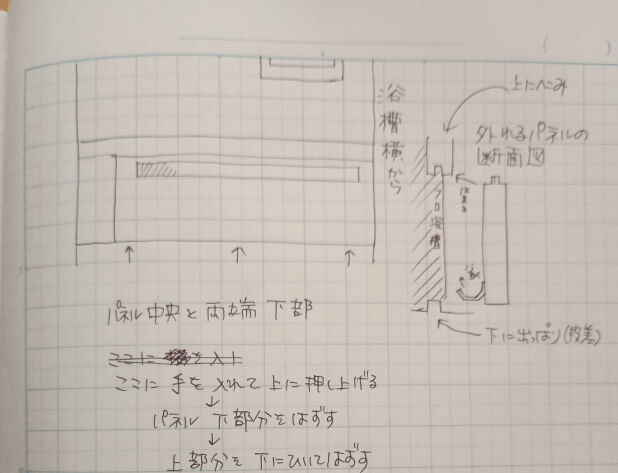 (      )
浴槽横から
上にくぼみ
外れるパネルの
断面図
はまる
浴槽
下に出っぱり(段差)
パネル中央と両端下部
ここに手を入れて上に押し上げる
↓
パネル下部分をはずす
↓
上部分を下にひいてはずす